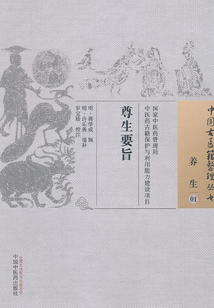 中国古医籍整理丛书
养生 01
国家中医药管理局
中医药古籍保护与利用能力建设项目
尊生要旨
明·蒋学成 辑
明·许乐善 增补
中国中医药出版社